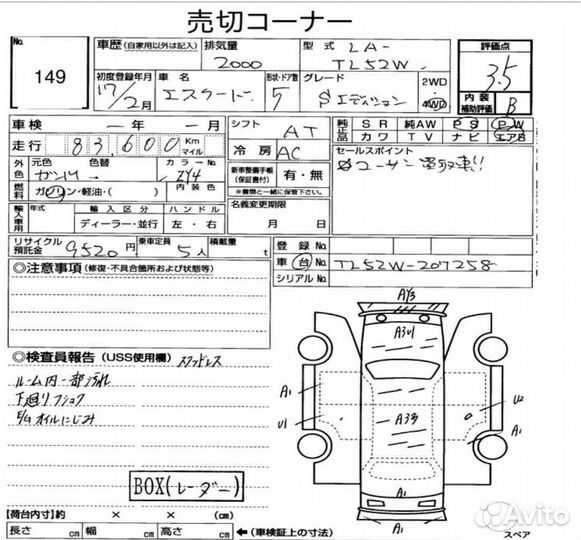 売切コーナー
No. 149
車歴 (自家用以外は記入) 排気量 2000 型式 LA-TL52W 評価点 3.5
初度登録年月 17/2月 車名 エスクード 形状・ドア数 5 グレード Sエディション 2WD・4WD 内装補助評価 B
車検 ー年 ー月 シフト AT 純正品 SR 純AW PS PW
カワ TV ナビ エアB
走行 83,600 Km マイル 冷房 AC セールスポイント
外色 元色 色替 カラーNo. ZY4
燃料 ガソリン・軽油・( ) 内装色 新車整備手帳(保証書付) 有・無
※書類と一緒に保管下さい。
輸入車用 年式 輸入区分 ハンドル 名義変更期限
ディーラー・並行 左・右 月 日
リサイクル預託金 9520円 乗車定員 5人 積載量 t 登録No.
◎注意事項 (修復・不具合箇所および状態等) 車台No. TL52W-207258
シリアルNo.
◎検査員報告 (USS使用欄) スタッドレス
ルーム内一部汚れ
下廻りフショク
E/Gオイルにじみ
BOX(レーダー)
AY3
A3U1
A1
U1
A33
U2
A1
A1
【荷台内寸】約 × × (cm)
長さ cm 幅 cm 高さ cm ←(車検証上の寸法)
スペア
Avito